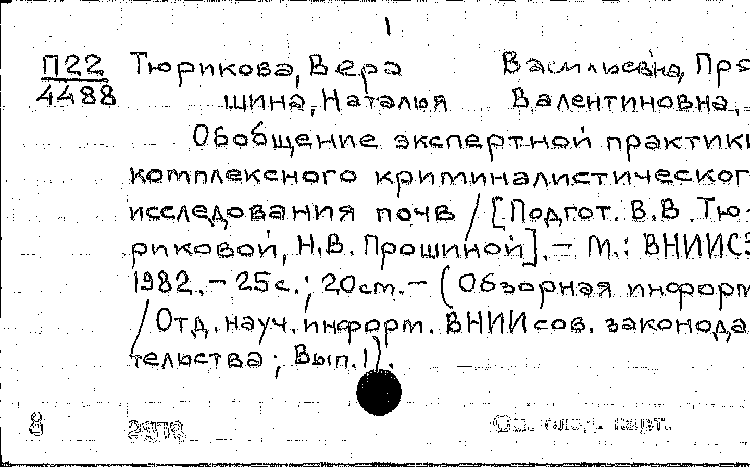 1
П22 Тюрикова, Вера Васильевна, Про
4488 шина, Наталья Валентиновна,
Обобщение экспертной практики
комплексного криминалистическог
исследования почв / [Подгот. В.В. Тю-
риковой, Н.В. Прошиной]. – М.: ВНИИСЭ
1982. – 25 с.; 20 см. – (Обзорная информ
/ Отд. науч. информ. ВНИИ сов. законода
тельства; Вып. 1).
8 См. след. карт.